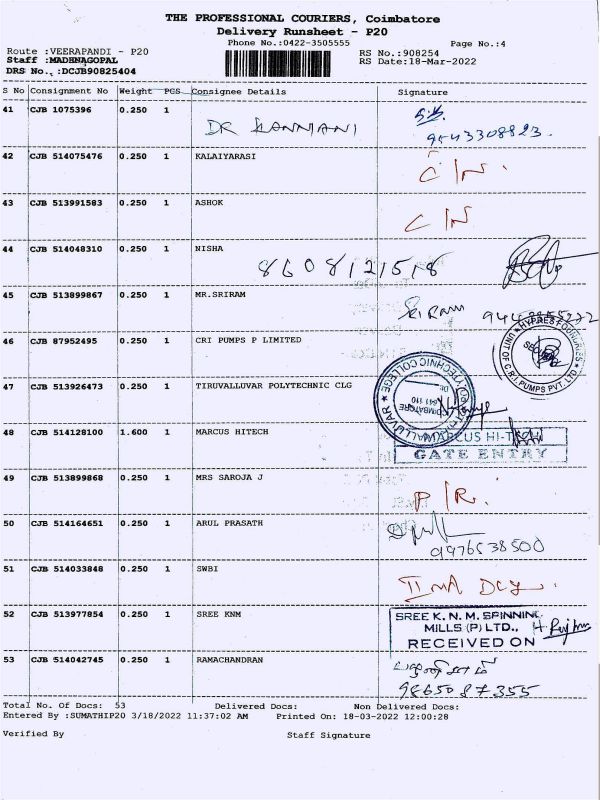 THE PROFESSIONAL COURIERS, Coimbatore
Delivery Runsheet - P20
Phone No.:0422-3505555
Page No.:4
Route :VEERAPANDI - P20
RS No.:908254
Staff :MADHNAGOPAL
RS Date:18-Mar-2022
DRS No.:DCJB90825404
S No Consignment No Weight PCS Consignee Details Signature
41 CJB 1075396 0.250 1
DR KANMANI
9543308823.
42 CJB 514075476 0.250 1 KALAIYARASI
C IN.
43 CJB 513991583 0.250 1 ASHOK
C IN
44 CJB 514048310 0.250 1 NISHA
8608121518
45 CJB 513899867 0.250 1 MR.SRIRAM
SRIRAM
46 CJB 87952495 0.250 1 CRI PUMPS P LIMITED
UNIT OF C.R.I. PUMPS PVT. LTD
47 CJB 513926473 0.250 1 TIRUVALLUVAR POLYTECHNIC CLG
POLYTECHNIC COLLEGE
COIMBATORE
641 110
48 CJB 514128100 1.600 1 MARCUS HITECH
MARCUS HI-
GATE ENTRY
49 CJB 513899868 0.250 1 MRS SAROJA J
P/R.
50 CJB 514164651 0.250 1 ARUL PRASATH
9976538500
51 CJB 514033848 0.250 1 SWBI
52 CJB 513977854 0.250 1 SREE KNM
SREE K. N. M. SPINNING
MILLS (P) LTD.,
RECEIVED ON
53 CJB 514042745 0.250 1 RAMACHANDRAN
9865087355
Total No. Of Docs: 53 Delivered Docs: Non Delivered Docs:
Entered By :SUMATHIP20 3/18/2022 11:37:02 AM Printed On: 18-03-2022 12:00:28
Verified By Staff Signature